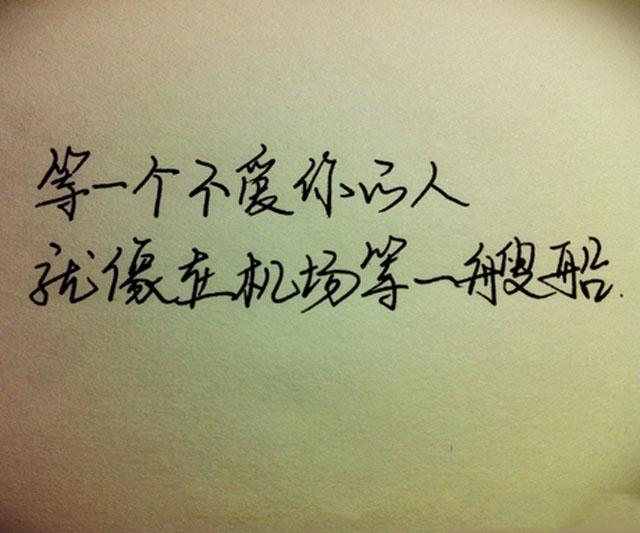 等一个不爱你的人
就像在机场等一艘船.